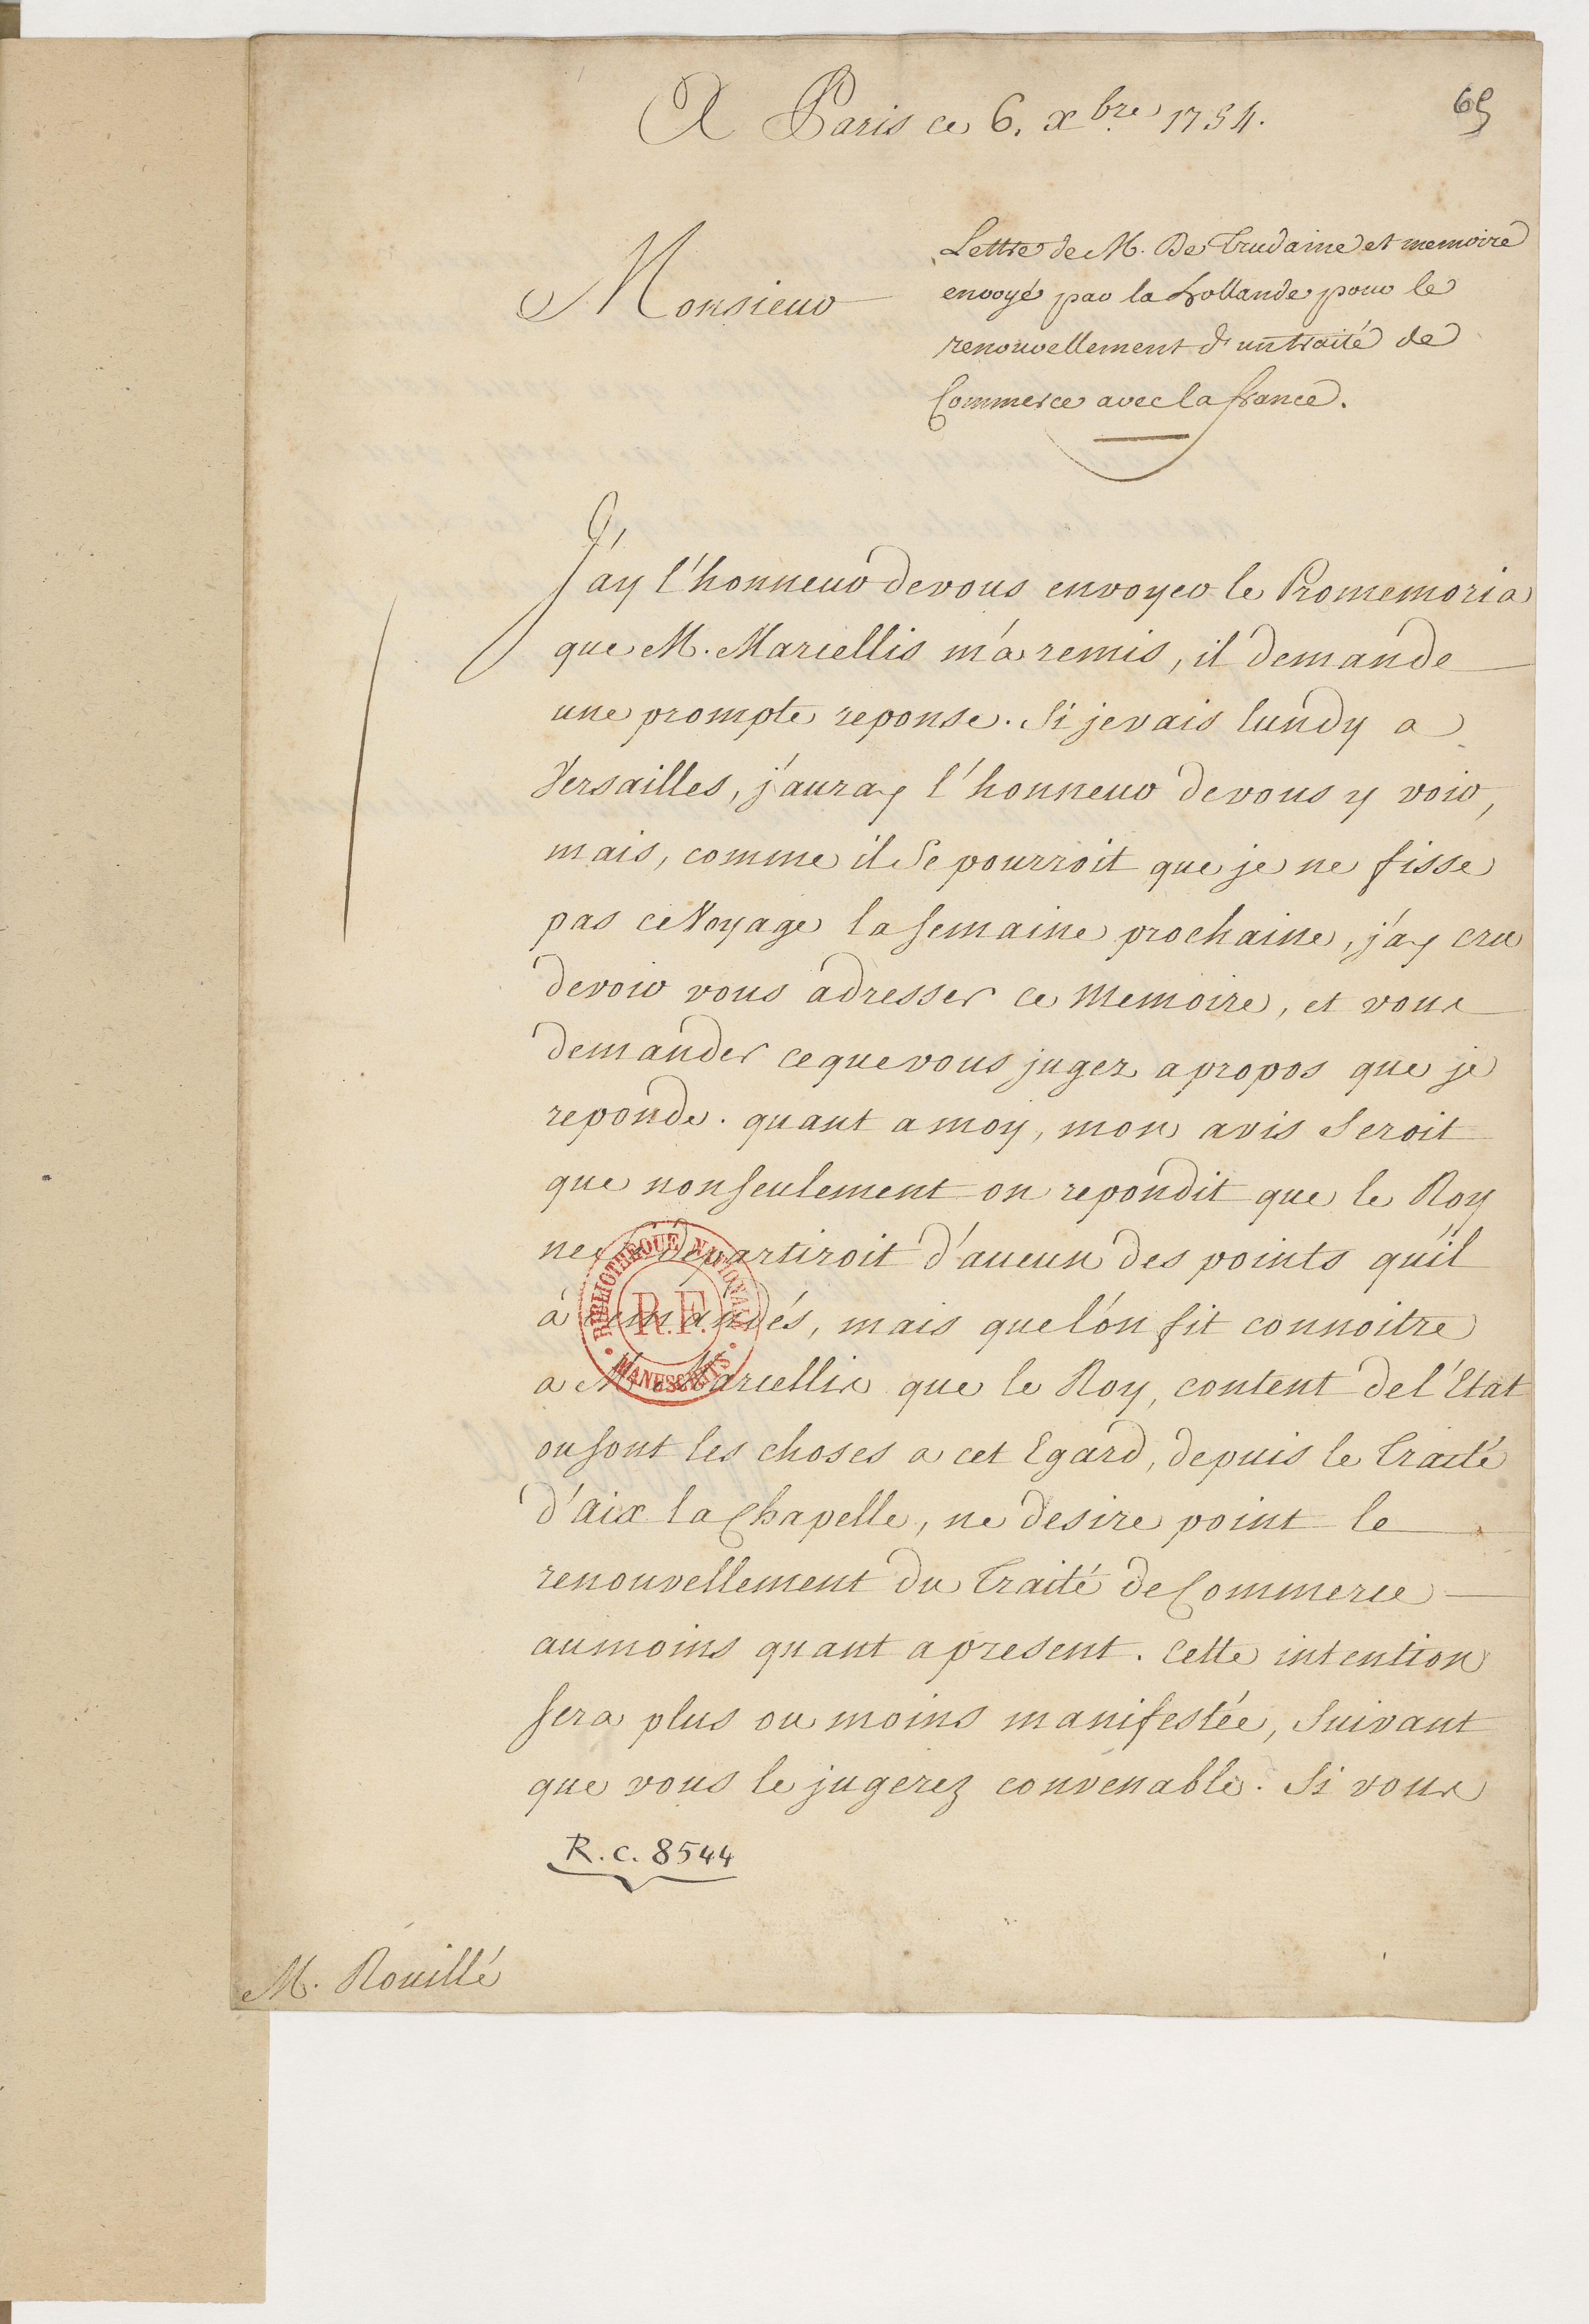 A Paris ce 6. xbre 1754.
65
Monsieur
Lettre de M. De Trudaine et memoire
envoyé par la hollande pour le
renouvellement d'un traité de
Commerce avec la france.
J'ay l'honneur de vous envoyer le Promemoria
que M. Marcellis m'a remis, il demande
une prompte reponse. Si je vais lundy a
Versailles, j'auray l'honneur de vous y voir,
mais, comme il Se pourroit que je ne fisse
pas ce Voyage la Semaine prochaine, j'ay cru
devoir vous adresser ce Memoire, et vous
demander ce que vous jugez a propos que je
reponde. quant a moy, mon avis Seroit
que non Seulement on repondit que le Roy
ne départiroit d'aucun des points qu'il
à demandés, mais que l'on fit connoitre
a M. Marcellis que le Roy, content de l'Etat
ou sont les choses a cet Egard, depuis le Traité
d'aix la Chapelle, ne desire point le
renouvellement du Traité de Commerce
au moins quant a present. Cette intention
Sera plus ou moins manifestée, Suivant
que vous le jugerez convenable. Si vous
BIBLIOTHEQUE NATIONALE
R.F.
MANUSCRITS
R.c. 8544
M. Rouillé